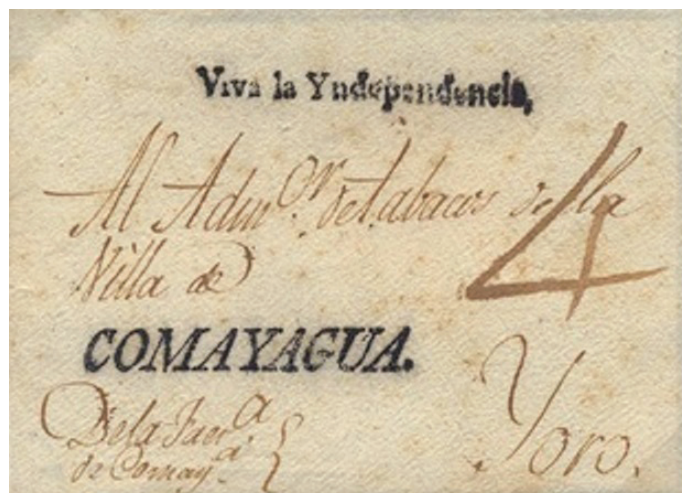 Viva la Yndependencia,
Al Admor. de tabacos de la 4
Villa de
COMAYAGUA.
Yoro.
De la Facª
de Comayª